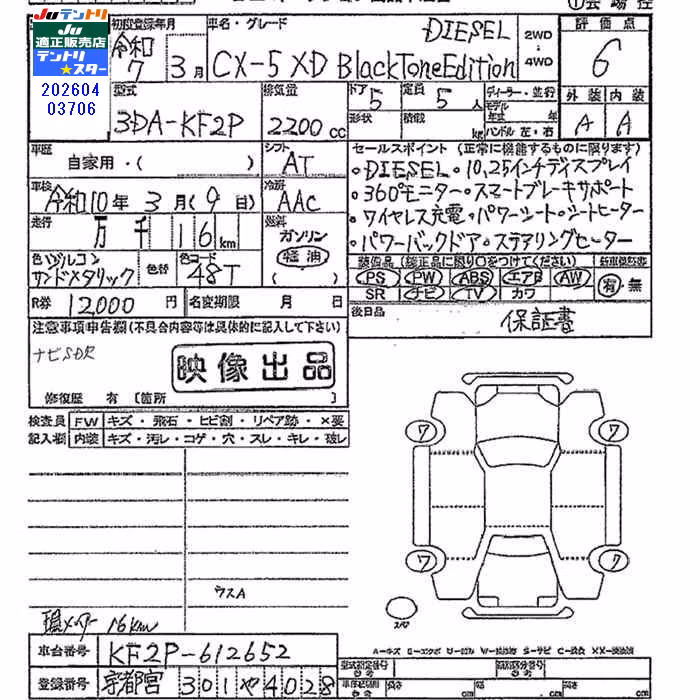 JUテントリ
JU
適正販売店
テントリ
スター
202604
03706
初度登録年月
令和7 3月
車名・グレード
DIESEL
CX-5 XD BlackToneEdition
2WD
4WD
評価点
6
型式
3DA-KF2P
排気量
2200cc
ドア 5
定員 5人
形状
積載 kg
ディーラー・並行
モデル年式 年
ハンドル 左・右
外装 内装
A A
車歴
自家用・( )
シフト
AT
セールスポイント (正常に機能するものに限ります)
・DIESEL・10.25インチディスプレイ
・360℃モニター・スマートブレーキサポート
・ワイヤレス充電・パワーシート・シートヒーター
・パワーバックドア・ステアリングヒーター
車検
令和10年 3月(9日)
冷房
AAC
走行
万 千 16km
燃料
ガソリン
軽油
( )
色 ジルコンサンドメタリック
色替
色コード
48T
装備品 (純正品に限り○をつけてください)
PS PW ABS エアB AW
SR ナビ TV カワ
新車保証書
有・無
R券 12,000円
名変期限 月 日
後日品
保証書
注意事項申告欄(不具合内容等は具体的に記入して下さい)
ナビSDR
映像出品
修復歴 有 [箇所 ]
検査員記入欄
FW キズ・飛石・ヒビ割・リペア跡・×要
内装 キズ・汚レ・コゲ・穴・スレ・キレ・破レ
ワ ワ
ワ ワ
ウスA
スペア
現メーター 16km
車台番号 KF2P-612652
登録番号 宇都宮 301 や 4028
型式指定番号
類別区分番号
長さ cm 幅 cm 高さ cm